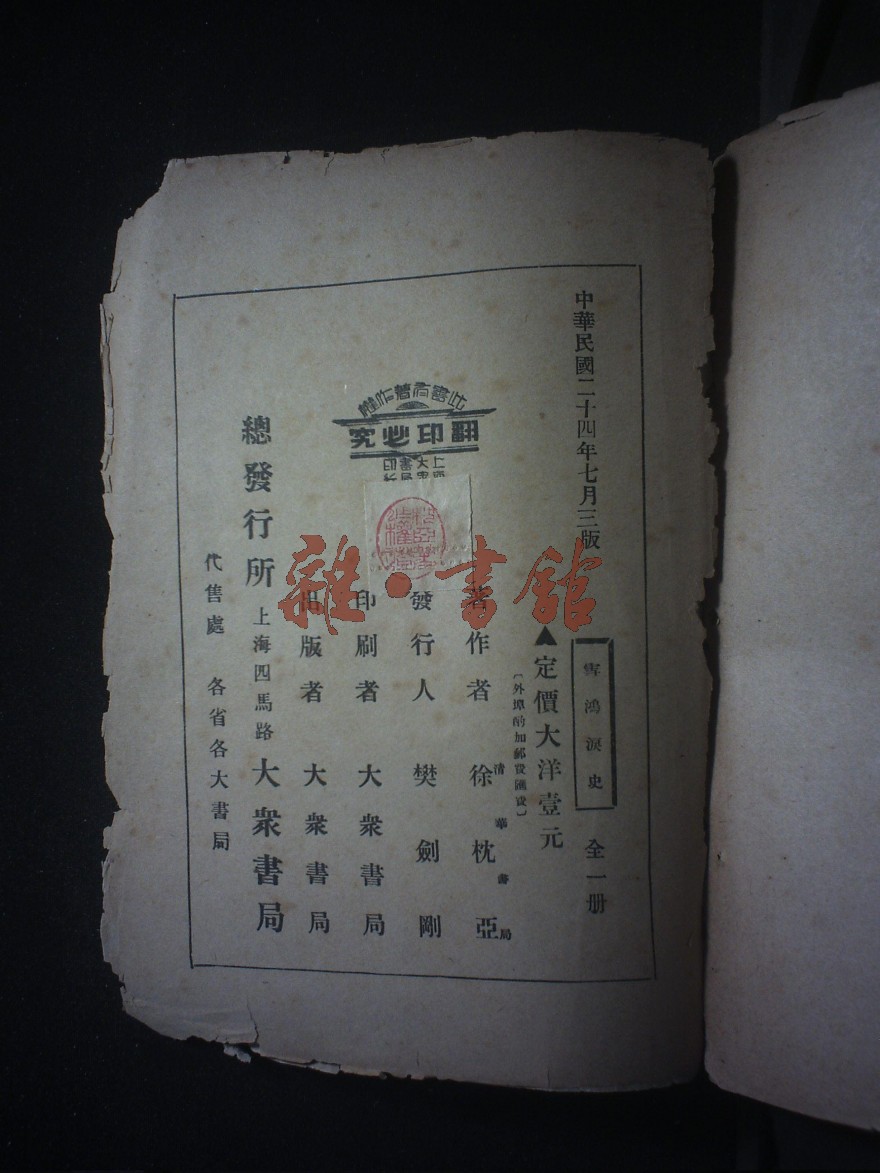 中華民國二十四年七月三版
雪鴻淚史 全一册
▲定價大洋壹元
〔外埠酌加郵費匯費〕
清華書局
著作者 徐枕亞
發行人 樊劍剛
印刷者 大衆書局
出版者 大衆書局
總發行所 上海四馬路 大衆書局
代售處 各省各大書局
此書有著作權
翻印必究
雜·書館